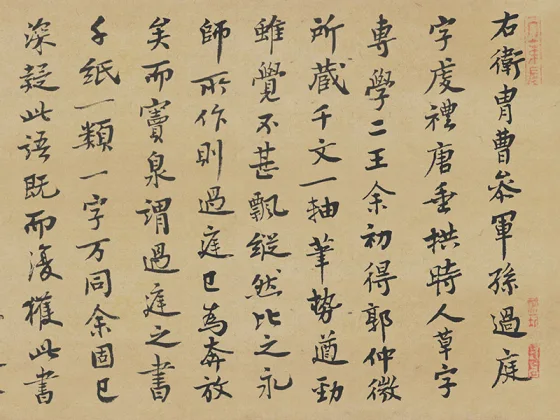 右衛冑曹參軍孫過庭
字虔禮唐垂拱時人草字
專學二王余初得郭仲微
所藏千文一軸筆勢遒勁
雖覺不甚飄縱然比之永
師所作則過庭已為奔放
矣而竇泉謂過庭之書
千紙一類一字万同余固已
深疑此語既而復獲此書